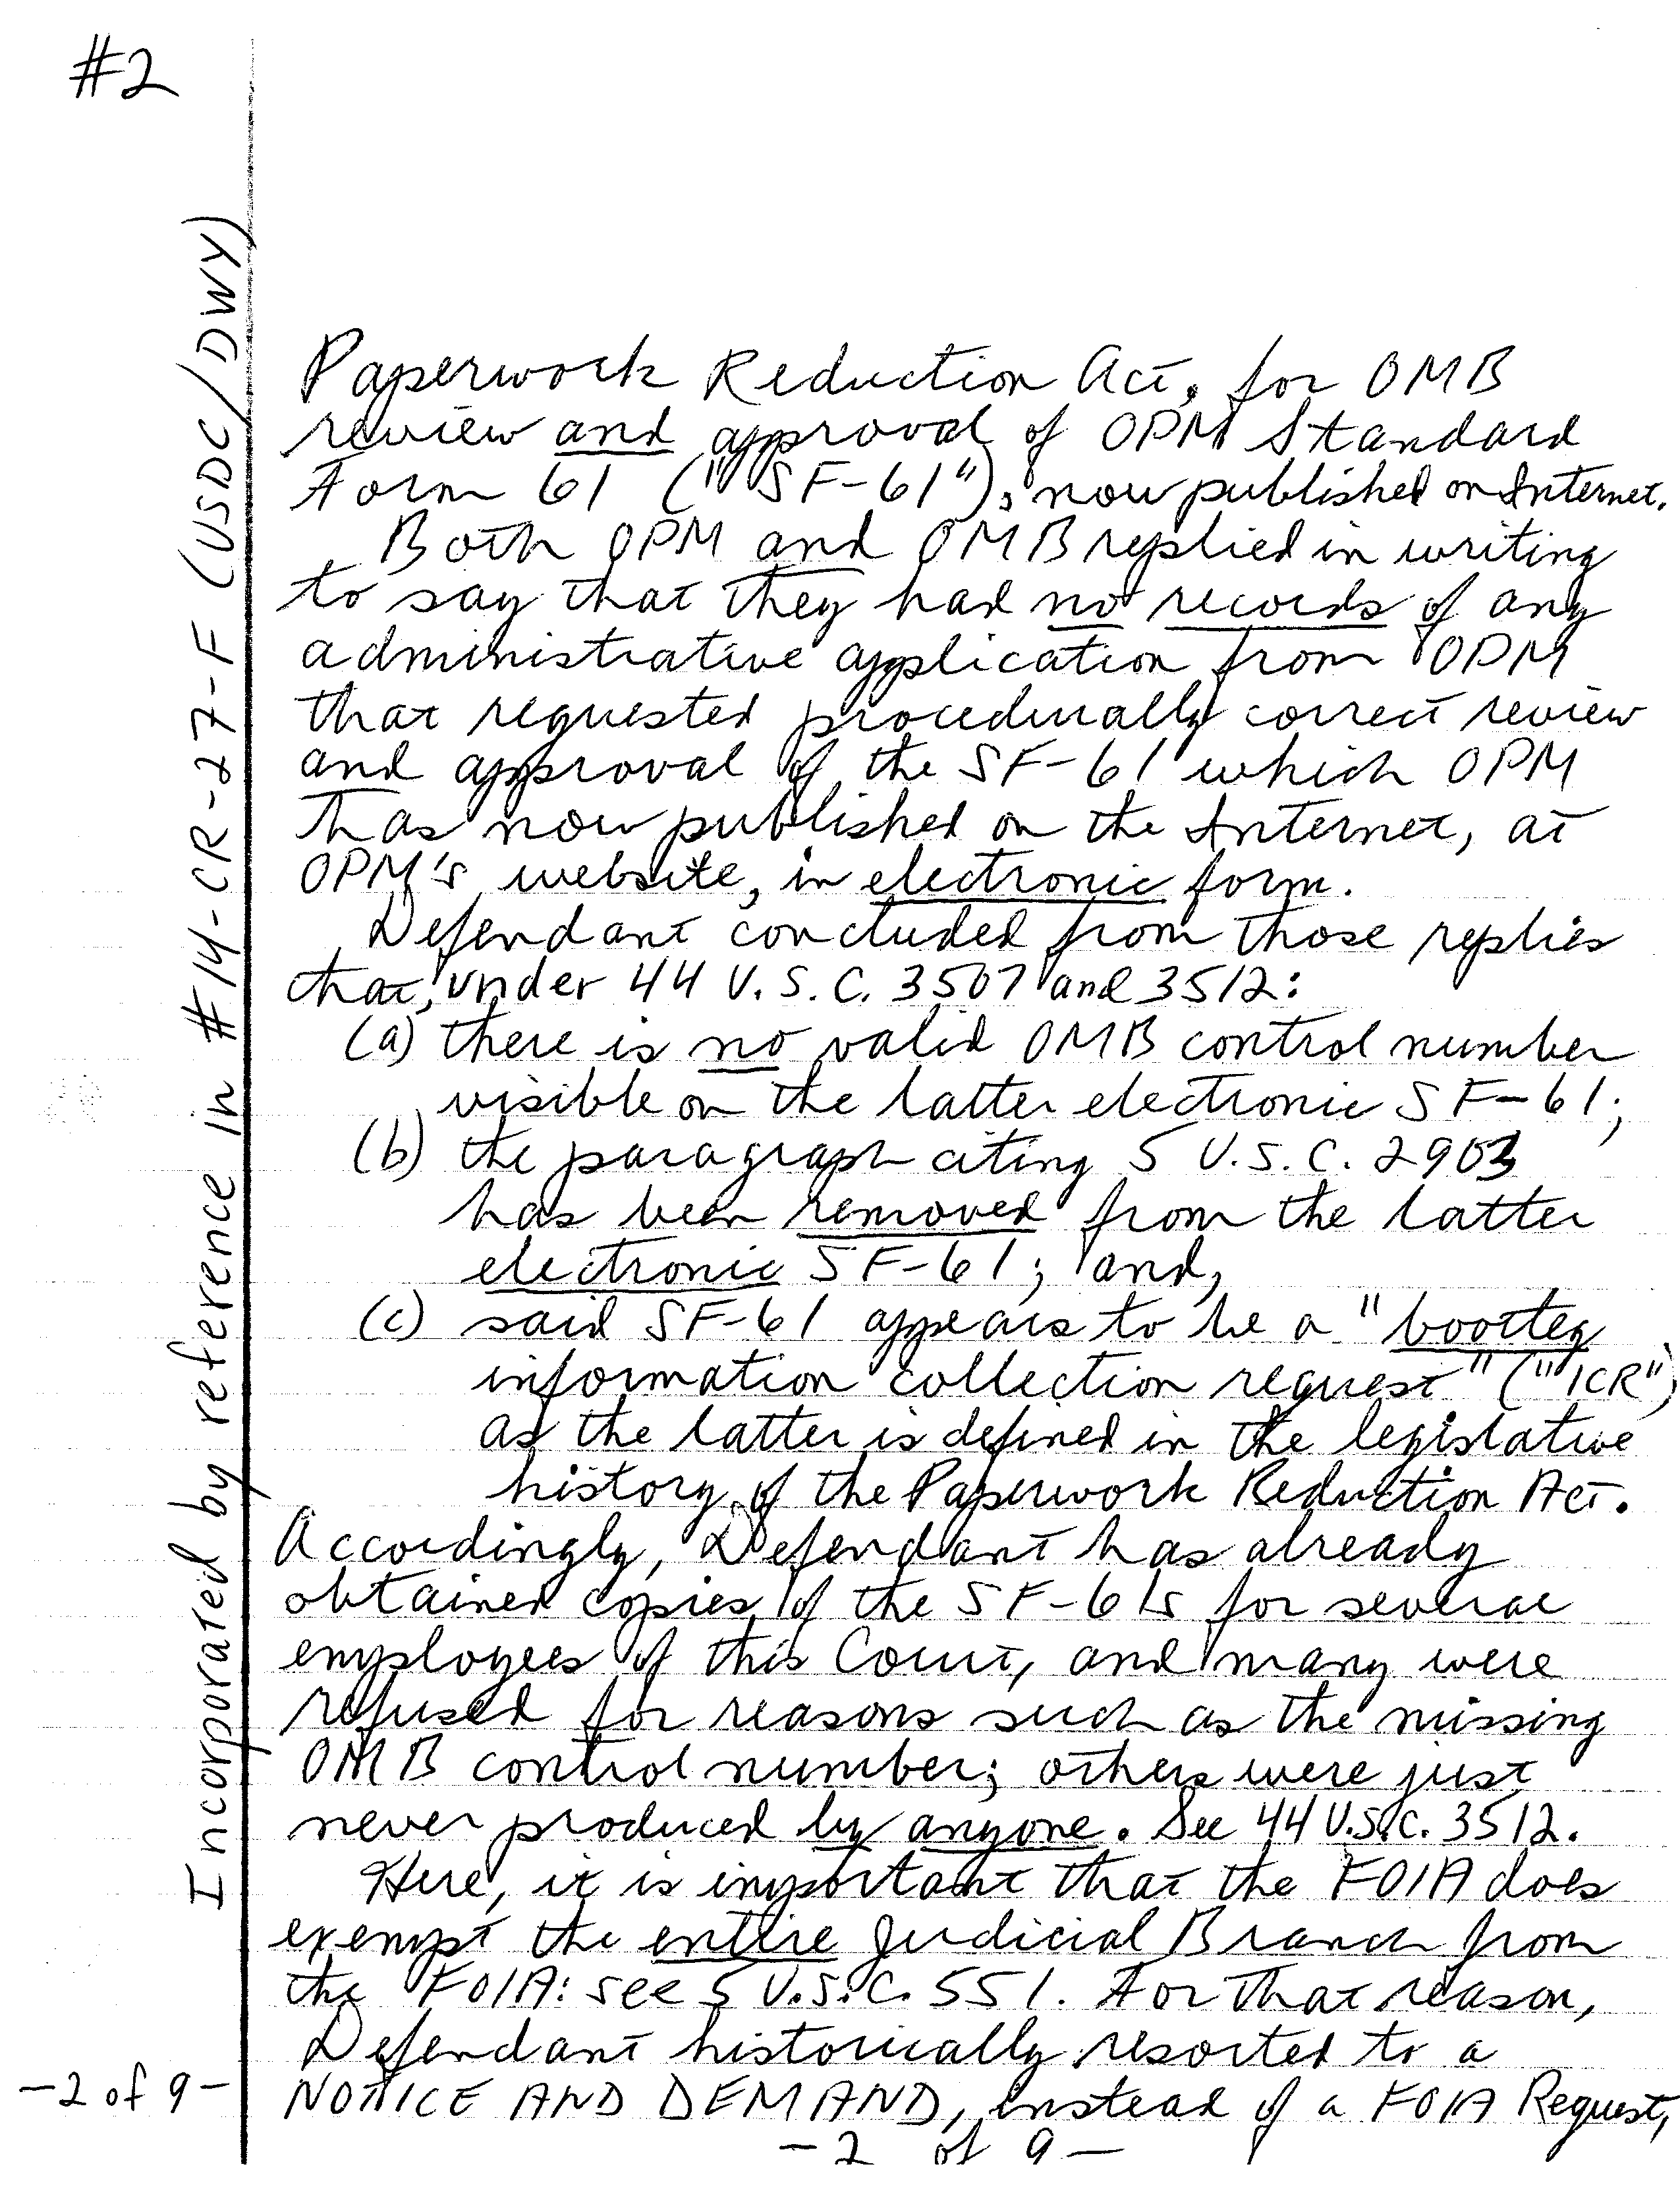 #2
Incorporated by reference in #14-CR-27-F (USDC/DWY)
Paperwork Reduction Act, for OMB
review and approval of OPM Standard
Form 61 ("SF-61"), now published on Internet.
Both OPM and OMB replied in writing
to say that they had no records of any
administrative application from OPM
that requested procedurally correct review
and approval of the SF-61 which OPM
has now published on the Internet, at
OPM's website, in electronic form.
Defendant concluded from those replies
that, under 44 U.S.C. 3507 and 3512:
(a) there is no valid OMB control number
visible on the latter electronic SF-61;
(b) the paragraph citing 5 U.S.C. 2903
has been removed from the latter
electronic SF-61; and,
(c) said SF-61 appears to be a "bootleg
information collection request" ("ICR")
as the latter is defined in the legislative
history of the Paperwork Reduction Act.
Accordingly, Defendant has already
obtained copies of the SF-61s for several
employees of this Court, and many were
refused for reasons such as the missing
OMB control number; others were just
never produced by anyone. See 44 U.S.C. 3512.
Here, it is important that the FOIA does
exempt the entire Judicial Branch from
the FOIA: see 5 U.S.C. 551. For that reason,
Defendant historically resorted to a
NOTICE AND DEMAND, instead of a FOIA Request,
-2 of 9-
-2 of 9-